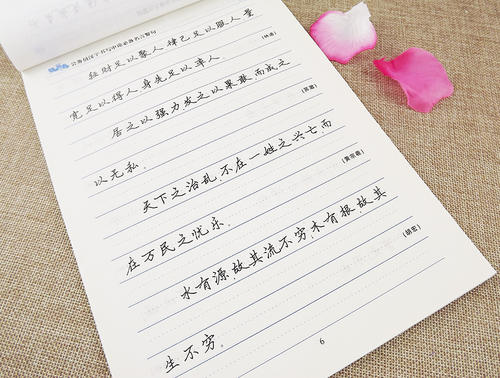 公务员汉字书写申论必备名言警句
轻财足以聚人,律己足以服人,量
(林逋)
宽足以得人,身先足以率人.
居之以强力,发之以果敢,而成之
(苏辙)
以无私.
天下之治乱,不在一姓之兴亡,而
(黄宗羲)
在万民之忧乐.
水有源,故其流不穷,木有根,故其
(胡宏)
生不穷.
6